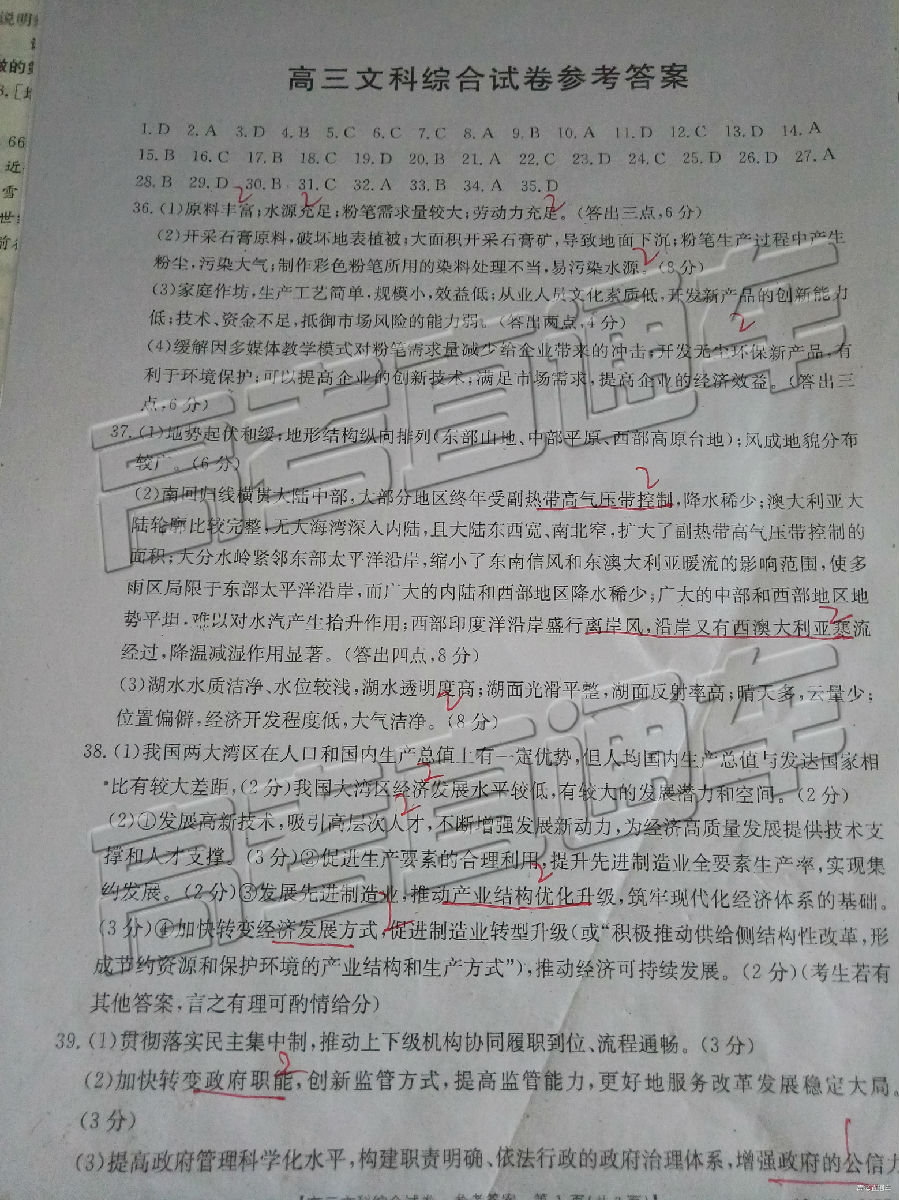 说明
做的
66
近
雪
世
前
高三文科综合试卷参考答案
1.D 2.A 3.D 4.B 5.C 6.C 7.C 8.A 9.B 10.A 11.D 12.C 13.D 14.A
15.B 16.C 17.B 18.C 19.D 20.B 21.A 22.C 23.D 24.C 25.D 26.D 27.A
28.B 29.D 30.B 31.C 32.A 33.B 34.A 35.D
36.(1)原料丰富;水源充足;粉笔需求量较大;劳动力充足。(答出三点,6分)
(2)开采石膏原料,破坏地表植被;大面积开采石膏矿,导致地面下沉;粉笔生产过程中产生
粉尘,污染大气;制作彩色粉笔所用的染料处理不当,易污染水源。(8分)
(3)家庭作坊,生产工艺简单,规模小,效益低;从业人员文化素质低,开发新产品的创新能力
低;技术、资金不足,抵御市场风险的能力弱。(答出两点,4分)
(4)缓解因多媒体教学模式对粉笔需求量减少给企业带来的冲击;开发无尘环保新产品,有
利于环境保护;可以提高企业的创新技术;满足市场需求,提高企业的经济效益。(答出三
点,6分)
37.(1)地势起伏和缓;地形结构纵向排列(东部山地、中部平原、西部高原台地);风成地貌分布
较广。(6分)
(2)南回归线横贯大陆中部,大部分地区终年受副热带高气压带控制,降水稀少;澳大利亚大
陆轮廓比较完整,无大海湾深入内陆,且大陆东西宽、南北窄,扩大了副热带高气压带控制的
面积;大分水岭紧邻东部太平洋沿岸,缩小了东南信风和东澳大利亚暖流的影响范围,使多
雨区局限于东部太平洋沿岸,而广大的内陆和西部地区降水稀少;广大的中部和西部地区地
势平坦,难以对水汽产生抬升作用;西部印度洋沿岸盛行离岸风,沿岸又有西澳大利亚寒流
经过,降温减湿作用显著。(答出四点,8分)
(3)湖水水质洁净、水位较浅,湖水透明度高;湖面光滑平整,湖面反射率高;晴天多,云量少;
位置偏僻,经济开发程度低,大气洁净。(8分)
38.(1)我国两大湾区在人口和国内生产总值上有一定优势,但人均国内生产总值与发达国家相
比有较大差距,(2分)我国大湾区经济发展水平较低,有较大的发展潜力和空间。(2分)
(2)①发展高新技术,吸引高层次人才,不断增强发展新动力,为经济高质量发展提供技术支
撑和人才支撑。(3分)②促进生产要素的合理利用,提升先进制造业全要素生产率,实现集
约发展。(2分)③发展先进制造业,推动产业结构优化升级,筑牢现代化经济体系的基础。
(3分)④加快转变经济发展方式,促进制造业转型升级(或“积极推动供给侧结构性改革,形
成节约资源和保护环境的产业结构和生产方式”),推动经济可持续发展。(2分)(考生若有
其他答案,言之有理可酌情给分)
39.(1)贯彻落实民主集中制,推动上下级机构协同履职到位、流程通畅。(3分)
(2)加快转变政府职能,创新监管方式,提高监管能力,更好地服务改革发展稳定大局。
(3分)
(3)提高政府管理科学化水平,构建职责明确、依法行政的政府治理体系,增强政府的公信力
高考直通车
高考直通车